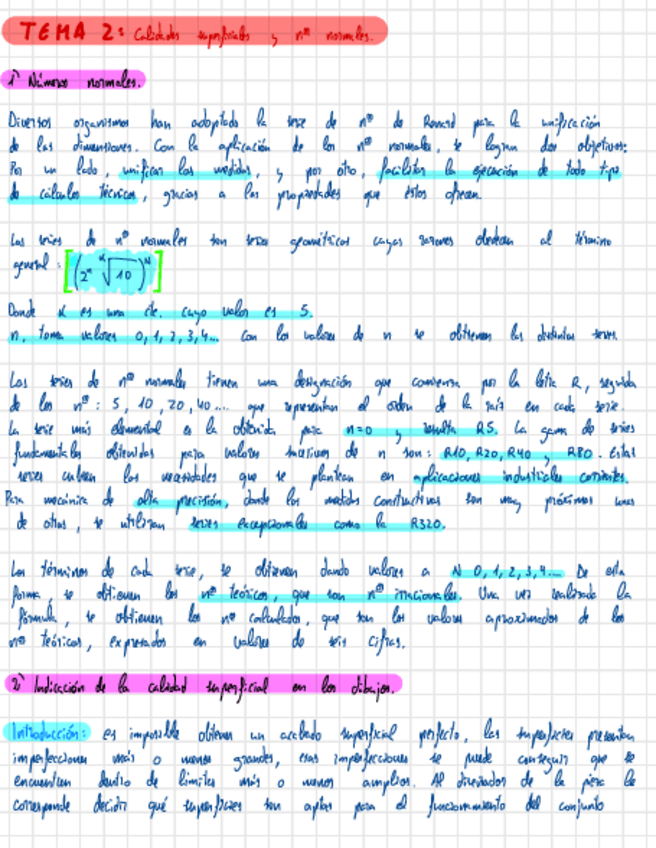 TEMA 2: Calidades superficiales y nos normales.
1) Números normales.
Diversos organismos han adoptado la serie de nos de Renard para la unificación
de las dimensiones. Con la aplicación de los nos normales, se logran dos objetivos:
Por un lado, unificar las medidas, y por otro, facilitar la ejecución de todo tipo
de cálculos técnicos, gracias a las propiedades que éstos ofrecen.
Las series de nos normales son series geométricas cuyas razones obedecen al término
general: [(2ⁿ ᴷ√10)ᴺ]
Donde K es una cte. cuyo valor es 5.
n, toma valores 0, 1, 2, 3, 4... Con los valores de n se obtienen las distintas series.
Las series de nos normales tienen una designación que comienza por la letra R, seguida
de los nos: 5, 10, 20, 40... que representan el orden de la raíz en cada serie.
La serie más elemental es la obtenida para n=0 y resulta R5. La gama de series
fundamentales obtenidas para valores sucesivos de n son: R10, R20, R40 y R80. Estas
series cubren las necesidades que se plantean en aplicaciones industriales corrientes.
Para mecánica de alta precisión, donde las medidas constructivas son muy próximas unas
de otras, se utilizan series excepcionales como la R320.
Los términos de cada serie, se obtienen dando valores a N 0, 1, 2, 3, 4... De esta
forma, se obtienen los nos teóricos, que son nos irracionales. Una vez realizada la
fórmula, se obtienen los nos calculados, que son los valores aproximados de los
nos teóricos, expresados en valores de seis cifras.
2) Indicación de la calidad superficial en los dibujos.
Introducción: es imposible obtener un acabado superficial perfecto, las superficies presentan
imperfecciones más o menos grandes, esas imperfecciones se puede conseguir que se
encuentren dentro de límites más o menos amplios. Al diseñador de la pieza le
corresponde decidir qué superficies son aptas para el funcionamiento del conjunto